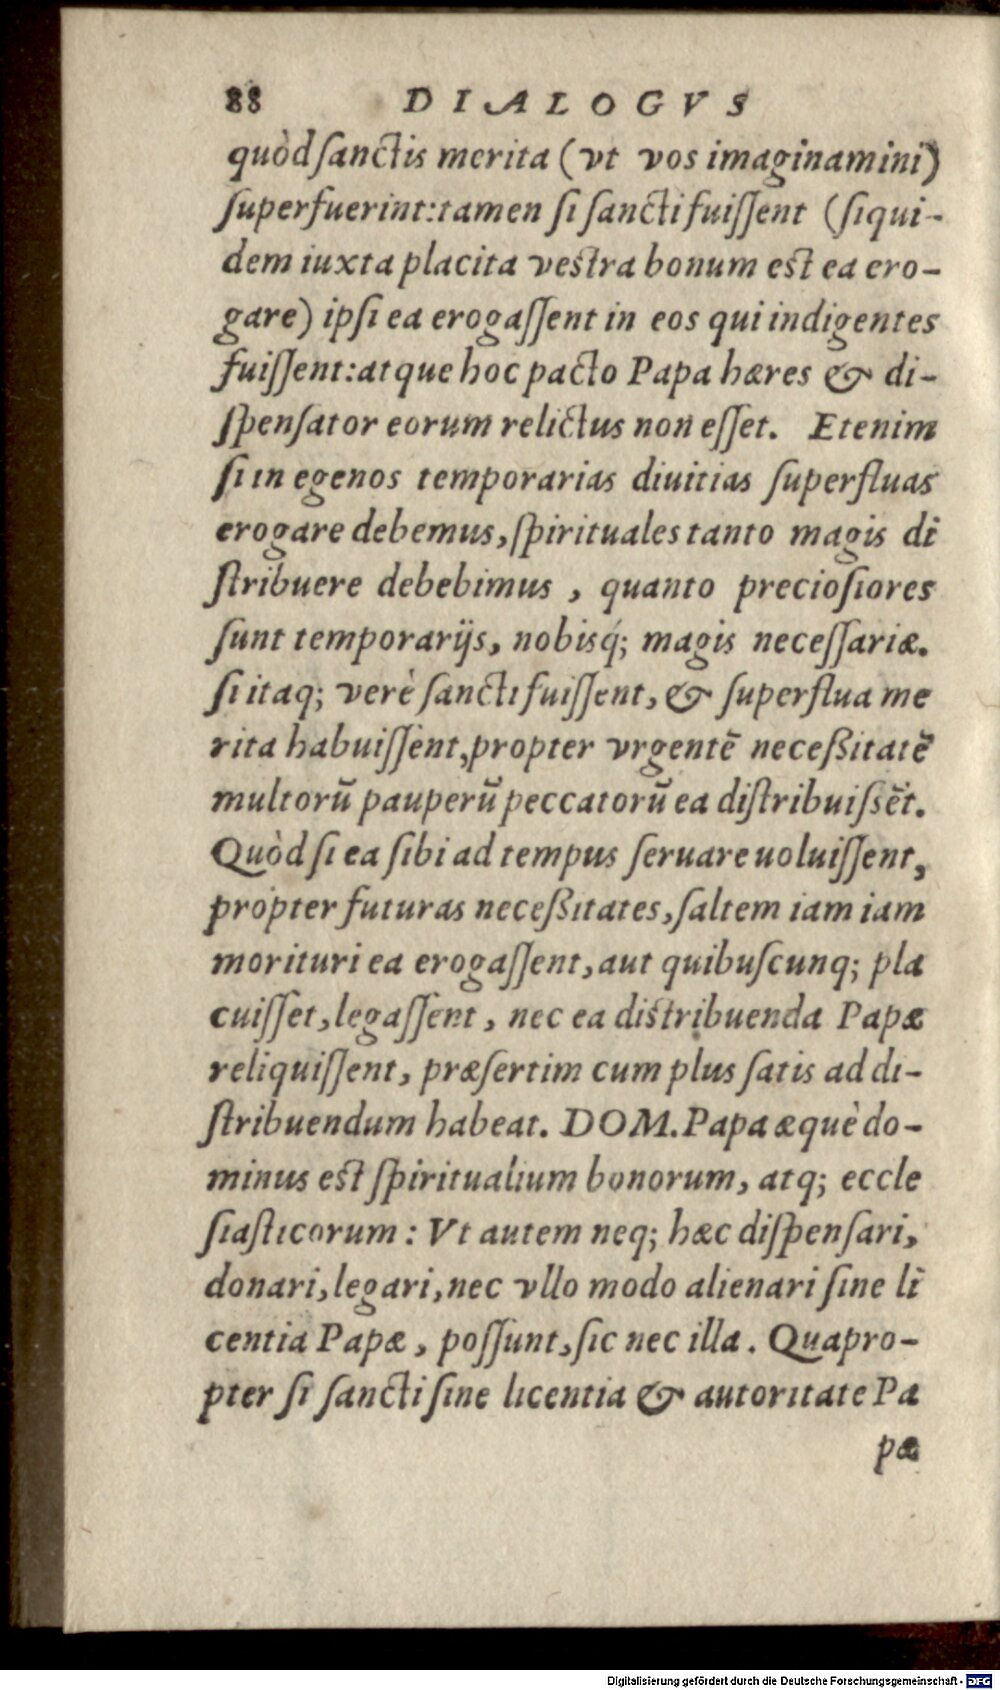 88 DIALOGVS
quòd ſanctis merita (vt vos imaginamini)
ſuperfuerint: tamen ſi ſancti fuiſſent (ſiqui-
dem iuxta placita veſtra bonum eſt ea ero-
gare) ipſi ea erogaſſent in eos qui indigentes
fuiſſent: atque hoc pacto Papa hæres & di-
ſpenſator eorum relictus non eſſet. Etenim
ſi in egenos temporarias diuitias ſuperfluas
erogare debemus, ſpirituales tanto magis di
ſtribuere debebimus, quanto precioſiores
ſunt temporarijs, nobisq́; magis neceſſariæ.
ſi itaq; verè ſancti fuiſſent, & ſuperflua me
rita habuiſſent, propter vrgentē neceßitatē
multorū pauperū peccatorū ea diſtribuiſsēt.
Quòd ſi ea ſibi ad tempus ſeruare uoluiſſent,
propter futuras neceßitates, ſaltem iam iam
morituri ea erogaſſent, aut quibuſcunq; pla
cuiſſet, legaſſent, nec ea diſtribuenda Papæ
reliquiſſent, præſertim cum plus ſatis ad di-
ſtribuendum habeat. DOM. Papa æquè do-
minus eſt ſpiritualium bonorum, atq; eccle
ſiaſticorum: Vt autem neq; hæc diſpenſari,
donari, legari, nec vllo modo alienari ſine li
centia Papæ, poſſunt, ſic nec illa. Quapro-
pter ſi ſancti ſine licentia & autoritate Pa
pæ
Digitalisierung gefördert durch die Deutsche Forschungsgemeinschaft - DFG